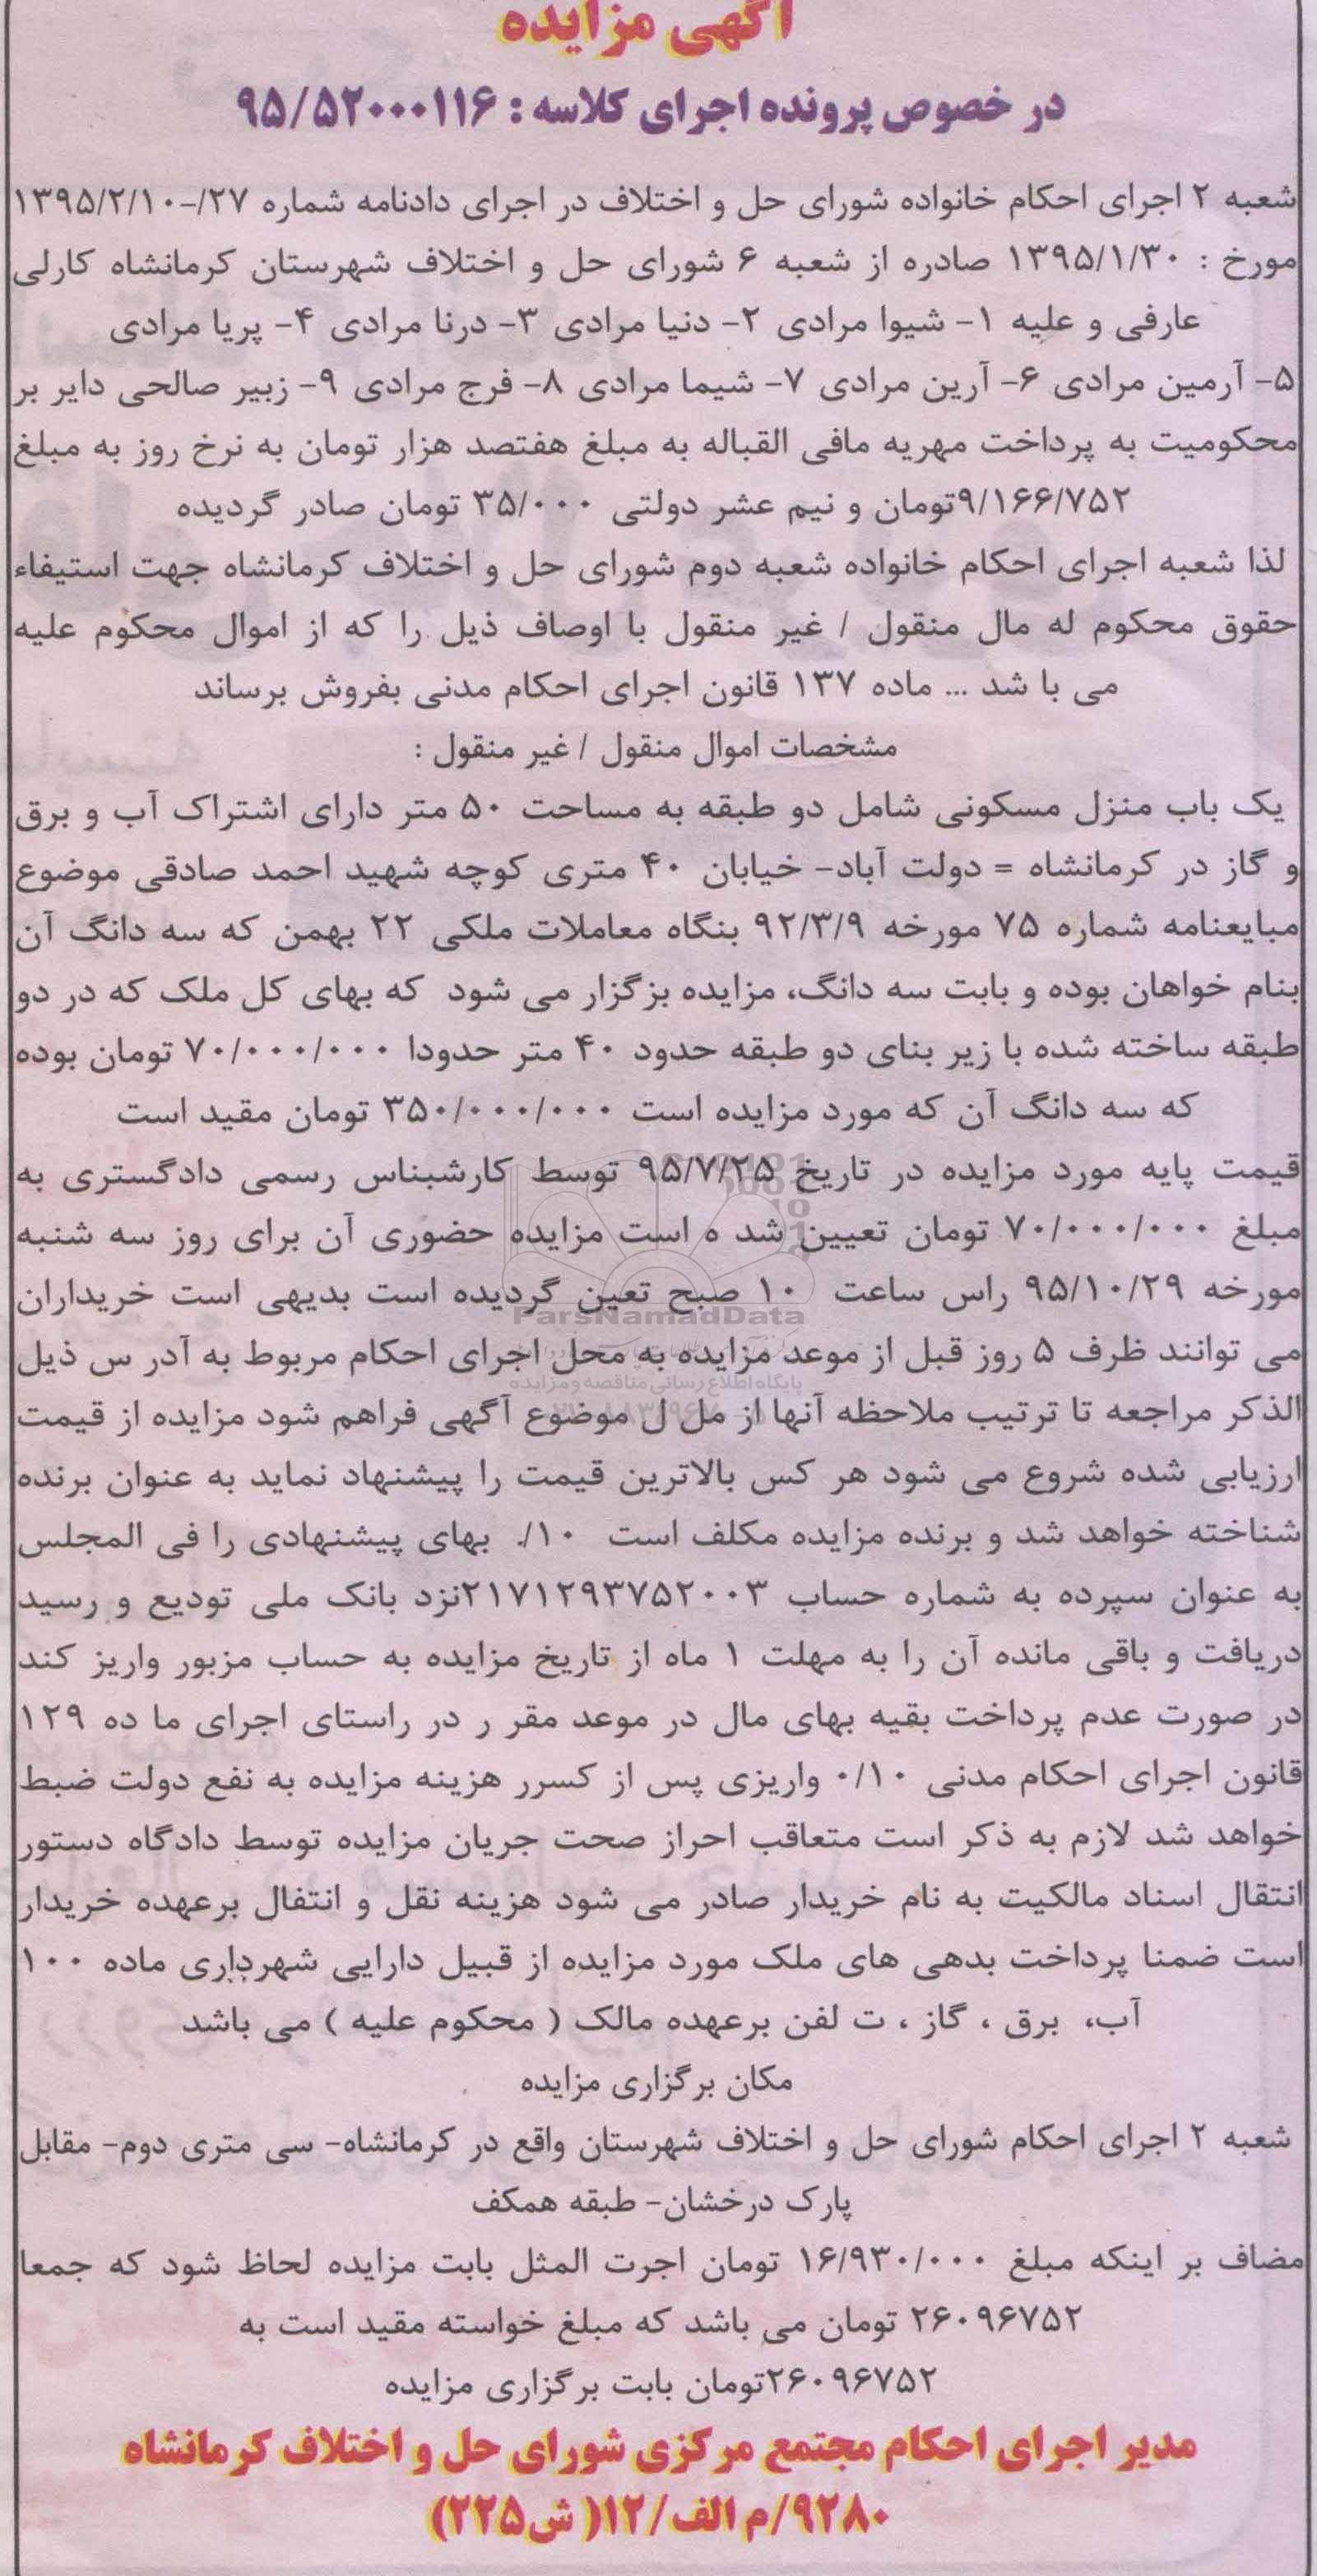 آگهی مزایده
در خصوص پرونده اجرای کلاسه : ۹۵/۵۲۰۰۰۱۱۶
شعبه ۲ اجرای احکام خانواده شورای حل و اختلاف در اجرای دادنامه شماره ۲۷/-۱۳۹۵/۲/۱۰
مورخ : ۱۳۹۵/۱/۳۰ صادره از شعبه ۶ شورای حل و اختلاف شهرستان کرمانشاه کارلی
عارفی و علیه ۱- شیوا مرادی ۲- دنیا مرادی ۳- درنا مرادی ۴- پریا مرادی
۵- آرمین مرادی ۶- آرین مرادی ۷- شیما مرادی ۸- فرج مرادی ۹- زبیر صالحی دایر بر
محکومیت به پرداخت مهریه مافی القباله به مبلغ هفتصد هزار تومان به نرخ روز به مبلغ
۹/۱۶۶/۷۵۲تومان و نیم عشر دولتی ۳۵/۰۰۰ تومان صادر گردیده
لذا شعبه اجرای احکام خانواده شعبه دوم شورای حل و اختلاف کرمانشاه جهت استیفاء
حقوق محکوم له مال منقول / غیر منقول با اوصاف ذیل را که از اموال محکوم علیه
می با شد ... ماده ۱۳۷ قانون اجرای احکام مدنی بفروش برساند
مشخصات اموال منقول / غیر منقول :
یک باب منزل مسکونی شامل دو طبقه به مساحت ۵۰ متر دارای اشتراک آب و برق
و گاز در کرمانشاه = دولت آباد- خیابان ۴۰ متری کوچه شهید احمد صادقی موضوع
مبایعنامه شماره ۷۵ مورخه ۹۲/۳/۹ بنگاه معاملات ملکی ۲۲ بهمن که سه دانگ آن
بنام خواهان بوده و بابت سه دانگ، مزایده بزگزار می شود که بهای کل ملک که در دو
طبقه ساخته شده با زیر بنای دو طبقه حدود ۴۰ متر حدودا ۷۰/۰۰۰/۰۰۰ تومان بوده
که سه دانگ آن که مورد مزایده است ۳۵۰/۰۰۰/۰۰۰ تومان مقید است
قیمت پایه مورد مزایده در تاریخ ۹۵/۷/۲۵ توسط کارشبناس رسمی دادگستری به
مبلغ ۷۰/۰۰۰/۰۰۰ تومان تعیین شد ه است مزایده حضوری آن برای روز سه شنبه
مورخه ۹۵/۱۰/۲۹ راس ساعت ۱۰ صبح تعین گردیده است بدیهی است خریداران
ParsNamadData
می توانند ظرف ۵ روز قبل از موعد مزایده به محل اجرای احکام مربوط به آدر س ذیل
پایگاه اطلاع رسانی مناقصه و مزایده
الذکر مراجعه تا ترتیب ملاحظه آنها از مل ل موضوع آگهی فراهم شود مزایده از قیمت
ارزیابی شده شروع می شود هر کس بالاترین قیمت را پیشنهاد نماید به عنوان برنده
شناخته خواهد شد و برنده مزایده مکلف است ۱۰/. بهای پیشنهادی را فی المجلس
به عنوان سپرده به شماره حساب ۲۱۷۱۲۹۳۷۵۲۰۰۳نزد بانک ملی تودیع و رسید
دریافت و باقی مانده آن را به مهلت ۱ ماه از تاریخ مزایده به حساب مزبور واریز کند
در صورت عدم پرداخت بقیه بهای مال در موعد مقر ر در راستای اجرای ما ده ۱۲۹
قانون اجرای احکام مدنی ۰/۱۰ واریزی پس از کسرر هزینه مزایده به نفع دولت ضبط
خواهد شد لازم به ذکر است متعاقب احراز صحت جریان مزایده توسط دادگاه دستور
انتقال اسناد مالکیت به نام خریدار صادر می شود هزینه نقل و انتفال برعهده خریدار
است ضمنا پرداخت بدهی های ملک مورد مزایده از قبیل دارایی شهرداری ماده ۱۰۰
آب، برق ، گاز ، ت لفن برعهده مالک ( محکوم علیه ) می باشد
مکان برگزاری مزایده
شعبه ۲ اجرای احکام شورای حل و اختلاف شهرستان واقع در کرمانشاه- سی متری دوم- مقابل
پارک درخشان- طبقه همکف
مضاف بر اینکه مبلغ ۱۶/۹۳۰/۰۰۰ تومان اجرت المثل بابت مزایده لحاظ شود که جمعا
۲۶۰۹۶۷۵۲ تومان می باشد که مبلغ خواسته مقید است به
۲۶۰۹۶۷۵۲تومان بابت برگزاری مزایده
مدیر اجرای احکام مجتمع مرکزی شورای حل و اختلاف کرمانشاه
۹۲۸۰/م الف/۱۲( ش۲۲۵)